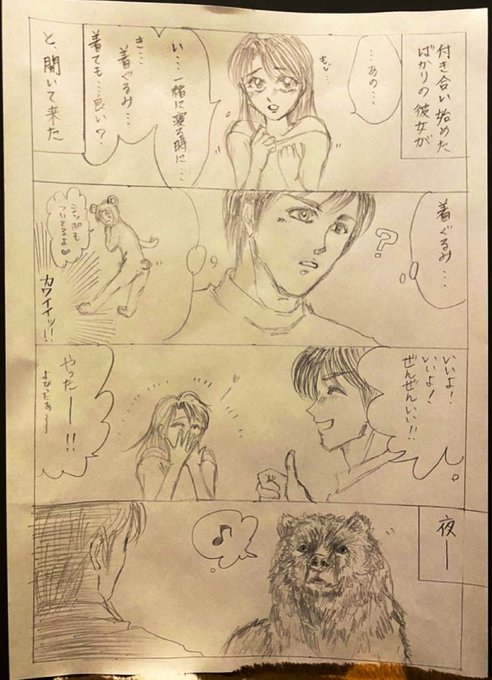 付き合い始めた
ばかりの彼女が
もじ…
…あの…
い…一緒に寝る時に…
き…
着ぐるみ…
着ても…良い？
と、聞いて来た
着ぐるみ…
？
シッポも
ついてるよ♡
カワイイッ!!
いいよ！
いいよ！
ぜんぜんいい!!
やったー!!
よかったぁ〜
夜ー
♪